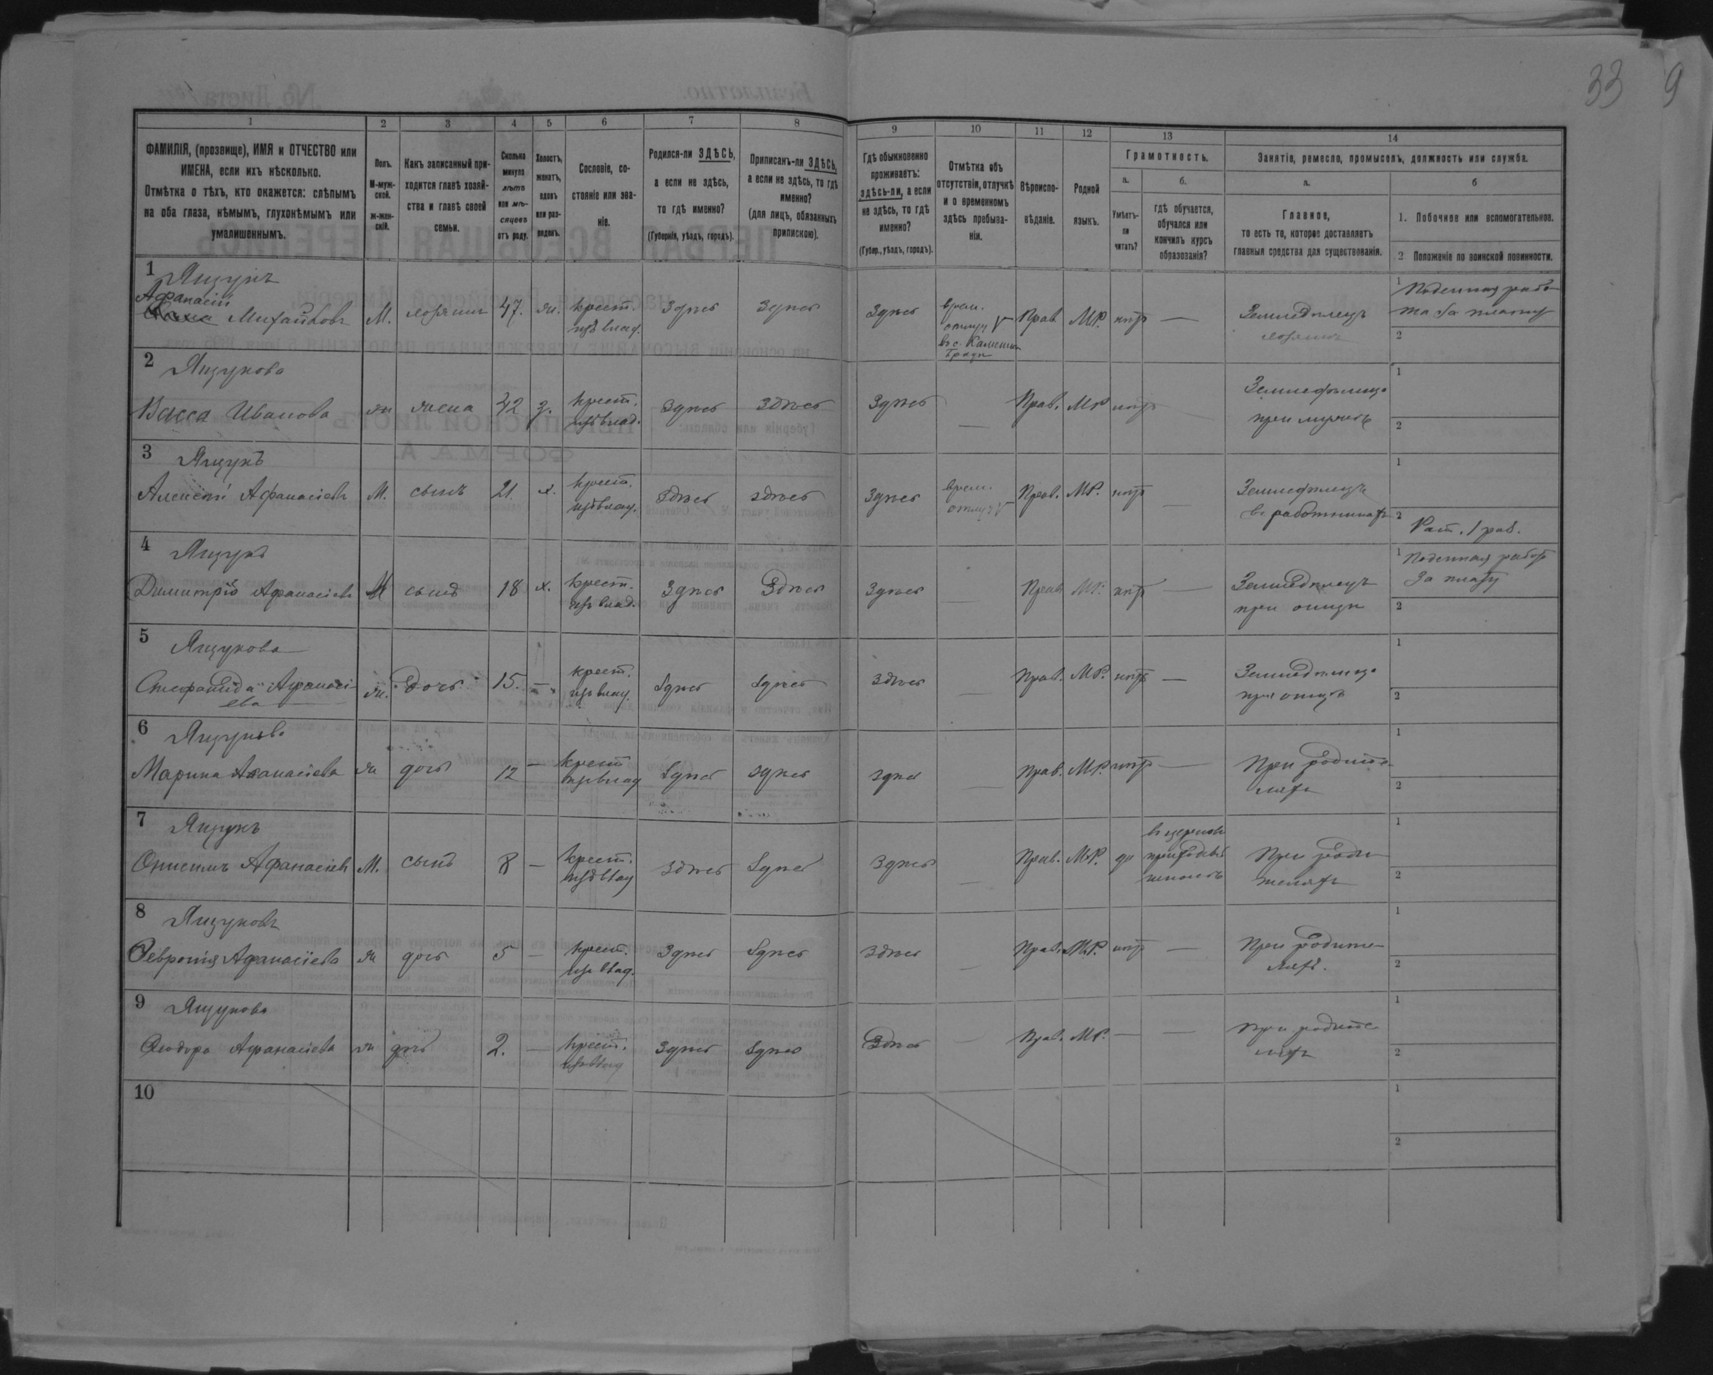 33 9
1 2 3 4 5 6 7 8 9 10 11 12 13 14
ФАМИЛІЯ, (прозвище), ИМЯ и ОТЧЕСТВО или
ИМЕНА, если ихъ нѣсколько.
Отмѣтка о тѣхъ, кто окажется: слѣпымъ
на оба глаза, нѣмымъ, глухонѣмымъ или
умалишеннымъ.
Полъ.
М-муж-
ской.
ж-жен-
скій.
Какъ записанный при-
ходится главѣ хозяй-
ства и главѣ своей
семьи.
Сколько
минуло
лѣтъ
или мѣ-
сяцевъ
отъ роду.
Холостъ,
женатъ,
вдовъ
или раз-
веденъ.
Сословіе, со-
стояніе или зва-
ніе.
Родился-ли ЗДѢСЬ,
а если не здѣсь,
то гдѣ именно?
(Губернія, уѣздъ, городъ).
Приписанъ-ли ЗДѢСЬ,
а если не здѣсь, то гдѣ
именно?
(для лицъ, обязанныхъ
припискою).
Гдѣ обыкновенно
проживаетъ:
здѣсь-ли, а если
не здѣсь, то гдѣ
именно?
(Губер., уѣздъ, городъ).
Отмѣтка объ
отсутствіи, отлучкѣ
и о временномъ
здѣсь пребыва-
ніи.
Вѣроиспо-
вѣданіе.
Родной
языкъ.
Грамотность.
а.
Умѣетъ-
ли
читать?
б.
гдѣ обучается,
обучался или
кончилъ курсъ
образованія?
Занятіе, ремесло, промыселъ, должность или служба.
а.
Главное,
то есть то, которое доставляетъ
главныя средства для существованія.
б
1. Побочное или вспомогательное.
2 Положеніе по воинской повинности.
1 Ящукъ
Афанасій
Михайловъ М. хозяинъ 47. ж. крест. изъ влад. Здѣсь Здѣсь Здѣсь врем. отлуч. Прав МР. нѣтъ — Земледѣлецъ хозяинъ
1 Поденная рабо
та за плату
2
2 Ящукова
Васса Иванова ж жена 42 з. крест. изъ влад. Здѣсь Здѣсь Здѣсь — Прав. МР нѣтъ Земледѣлица при мужѣ
1
2
3 Ящукъ
Алексѣй Афанасіевъ М. сынъ 21. х. крест. изъ влад. Здѣсь здѣсь Здѣсь врем. отлуч. Прав. МР. нѣтъ — Земледѣлецъ въ работникахъ
1
2 Рат. 1 раз.
4 Ящукъ
Димитрій Афанасіевъ М сынъ 18 х. крест. изъ влад. Здѣсь Здѣсь Здѣсь Прав МР. нѣтъ — Земледѣлецъ при отцѣ
1 Поденная работ
за плату
2
5 Ящукова
Стефанида Афанасі-
ева ж. дочь 15. — крест. изъ влад. Здѣсь Здѣсь здѣсь — Прав. МР. нѣтъ — Земледѣлица при отцѣ
1
2
6 Ящукова
Марина Афанасіева ж дочь 12 — крест изъ влад Здѣсь здѣсь здѣсь — Прав. МР. нѣтъ — При родите
ляхъ
1
2
7 Ящукъ
Онисимъ Афанасіевъ М. сынъ 8 — крест. изъ влад Здѣсь Здѣсь Здѣсь — Прав. МР. да въ церковно приходской школѣ При роди
теляхъ
1
2
8 Ящукова
Февронія Афанасіева ж дочь 5 — крест. изъ влад. Здѣсь Здѣсь Здѣсь — Прав. МР. нѣтъ — При родите-
ляхъ.
1
2
9 Ящукова
Ѳеодора Афанасіева ж дочь 2. — крест. изъ влад Здѣсь Здѣсь Здѣсь — Прав. МР. — — При родите
ляхъ
1
2
10
1
2